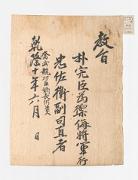 敎旨
朴完臣爲禦侮將軍行
忠佐衛副司直者
乾隆十年六月 日